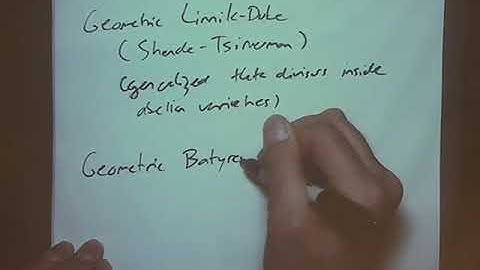 Geometric Linnik-Duke
(Shende-Tsimerman)
(generalized theta divisors inside
abelian varieties)
Geometric Batyre